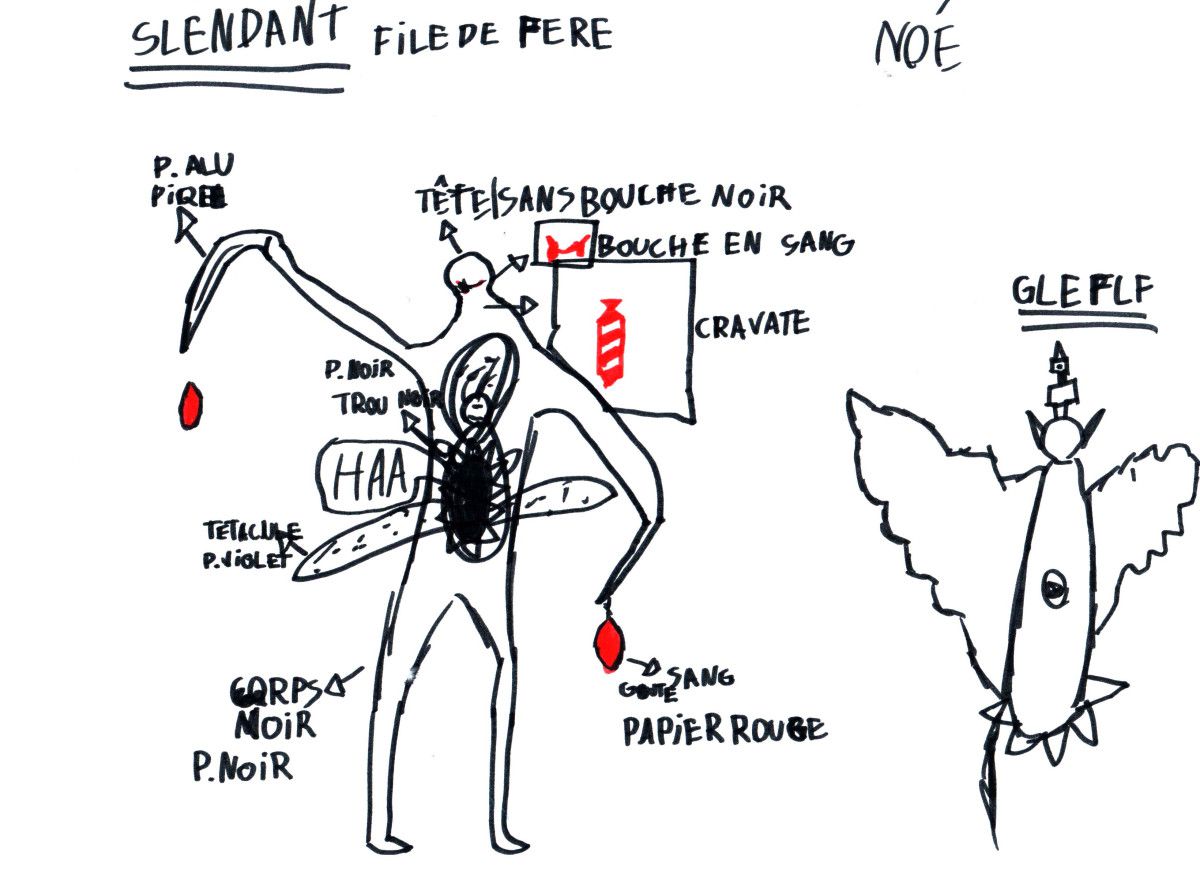 SLENDANT FiLE DE FERE
NOÉ
P. ALU
PiQRE
TÊTE/SANS BOUCHE NOiR
BOUCHE EN SANG
GLEFLF
CRAVATE
P. NOiR
TROU NOiR
HAA
TETACULE
P. ViOLET
SANG
GOUTE
CORPS
NOiR
PAPiER ROUGE
P. NOiR